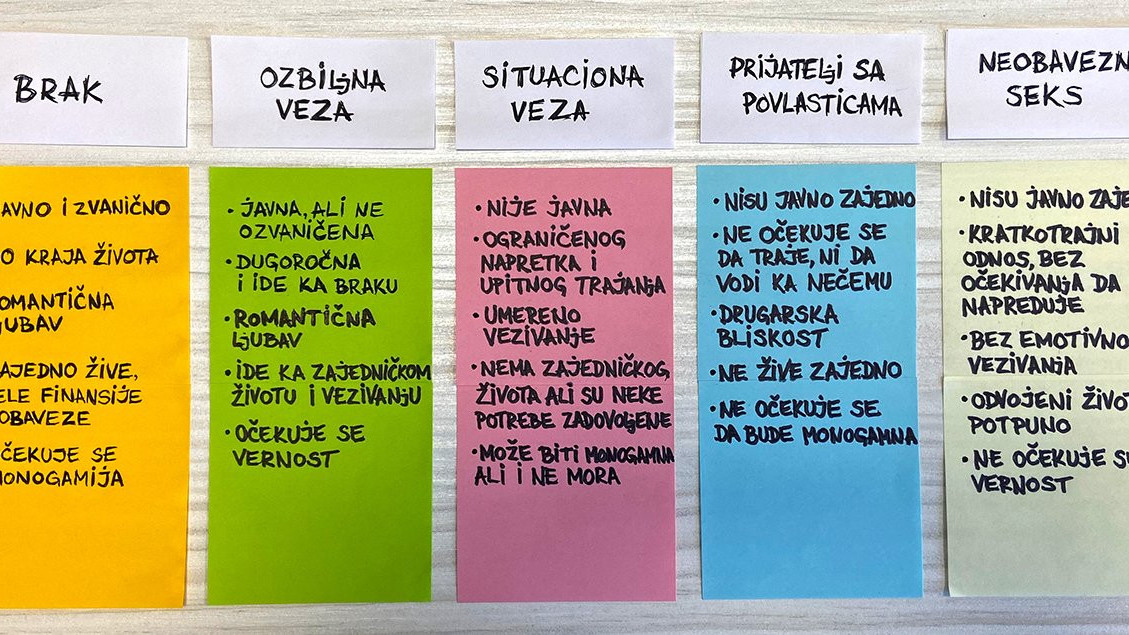 BRAK
AVNO I ZVANIČNO
O KRAJA ŽIVOTA
OMANTIČNA
JUBAV
AJEDNO ŽIVE,
ELE FINANSIJE
OBAVEZE
ČEKUJE SE
MONOGAMIJA
OZBILJNA
VEZA
• JAVNA, ALI NE
OZVANIČENA
• DUGOROČNA
I IDE KA BRAKU
• ROMANTIČNA
LJUBAV
• IDE KA ZAJEDNIČKOM
ŽIVOTU I VEZIVANJU
• OČEKUJE SE
VERNOST
SITUACIONA
VEZA
• NIJE JAVNA
• OGRANIČENOG
NAPRETKA I
UPITNOG TRAJANJA
• UMERENO
VEZIVANJE
• NEMA ZAJEDNIČKOG,
ŽIVOTA ALI SU NEKE
POTREBE ZADOVOLJENE
• MOŽE BITI MONOGAMNA
ALI I NE MORA
PRIJATELJI SA
POVLASTICAMA
• NISU JAVNO ZAJEDNO
• NE OČEKUJE SE
DA TRAJE, NI DA
VODI KA NEČEMU
• DRUGARSKA
BLISKOST
• NE ŽIVE ZAJEDNO
• NE OČEKUJE SE
DA BUDE MONOGAMNA
NEOBAVEZN
SEKS
• NISU JAVNO ZAJE
• KRATKOTRAJNI
ODNOS, BEZ
OČEKIVANJA DA
NAPREDUJE
• BEZ EMOTIVNO
VEZIVANJA
• ODVOJENI ŽIVOT
POTPUNO
• NE OČEKUJE S
VERNOST